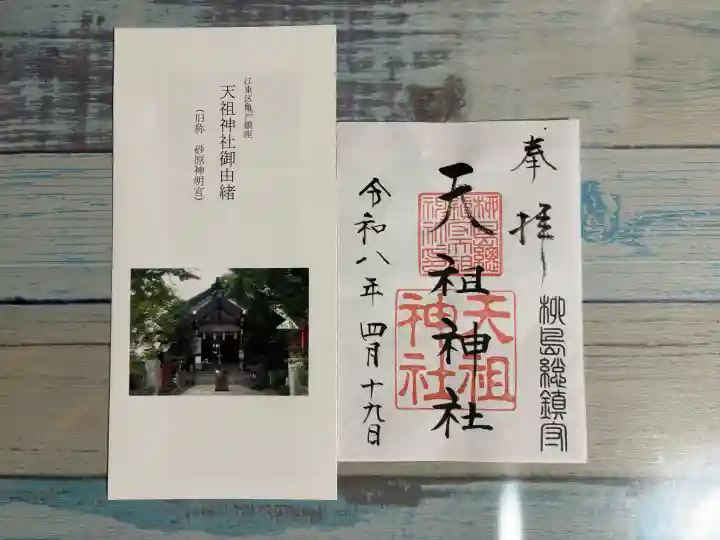 江東区亀戸鎮座
天祖神社御由緒
(旧称 砂原神明宮)
奉拝
柳島総鎮守
天祖神社
天祖神社
令和八年四月十九日